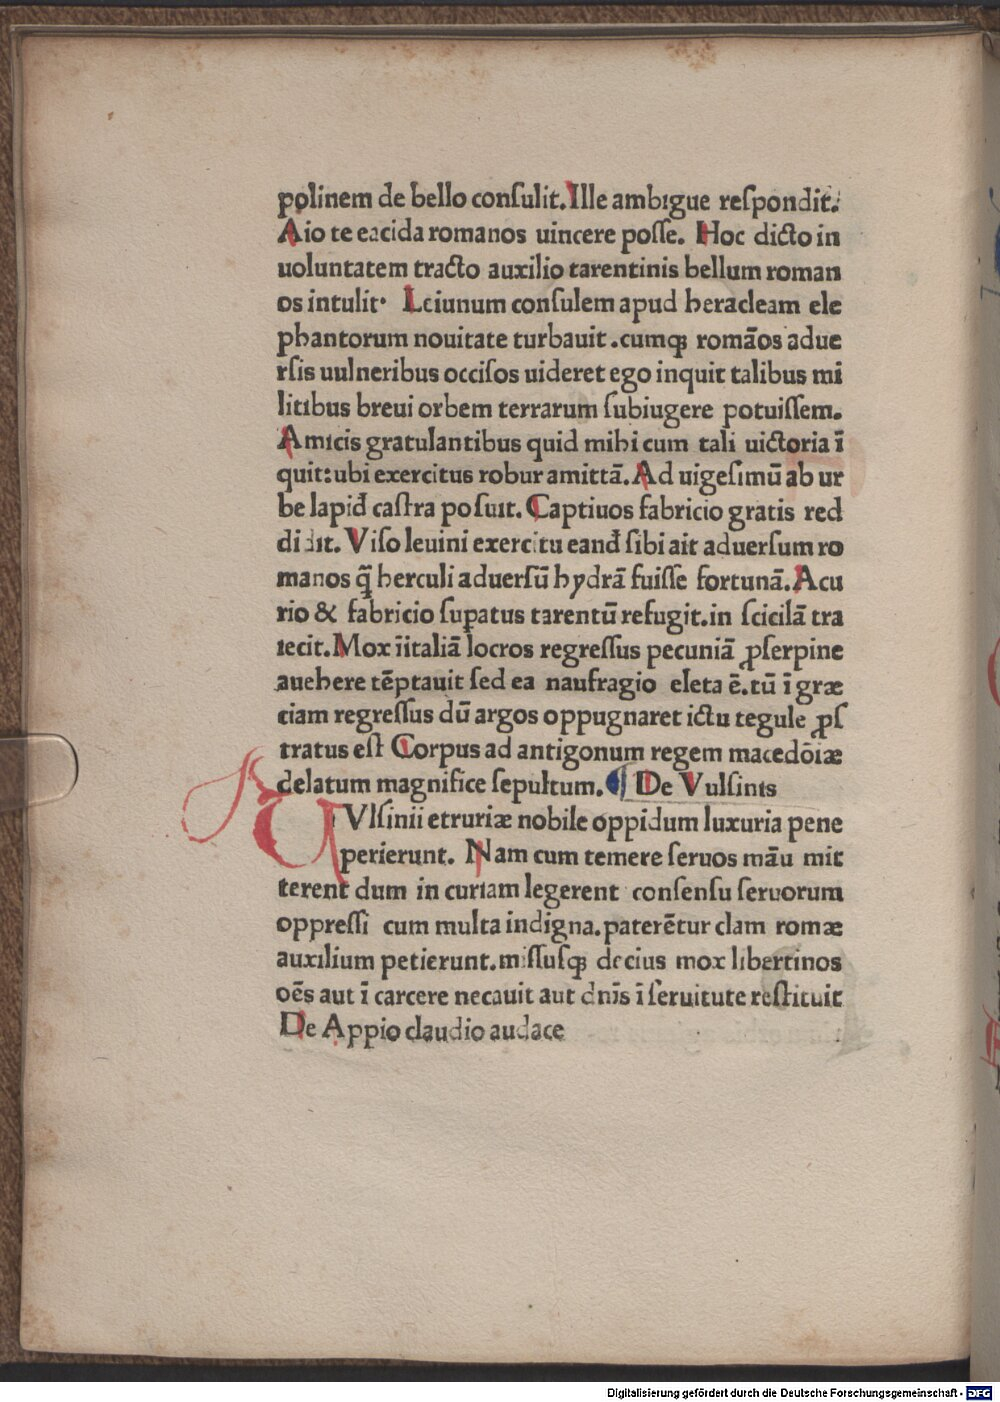 polinem de bello conſulit. Ille ambigue reſpondit.
Aio te eacida romanos uincere poſſe. Hoc dicto in
uoluntatem tracto auxilio tarentinis bellum roman
os intulit· Leiunum conſulem apud heracleam ele
phantorum nouitate turbauit .cumqꝫ romãos adue
rſis uulneribus occiſos uideret ego inquit talibus mi
litibus breui orbem terrarum ſubiugere potuiſſem.
Amicis gratulantibus quid mihi cum tali uictoria ĩ
quit: ubi exercitus robur amittã. Ad uigeſimũ ab ur
be lapid̄ caſtra poſuit. Captiuos fabricio gratis red
didit. Viſo leuini exercitu eand̄ ſibi ait aduerſum ro
manos q̃ herculi aduerſũ hydrã fuiſſe fortunã. A cu
rio & fabricio ſupatus tarentũ refugit. in ſcicilã tra
iecit. Mox ĩ italiã locros regreſſus pecuniã ꝓſerpine
auehere tẽptauit ſed ea naufragio eleta ẽ. tũ ĩ græ
ciam regreſſus dũ argos oppugnaret ictu tegule ꝓſ
tratus eſt Corpus ad antigonum regem macedõiæ
delatum magnifice ſepultum. De Vulſinis
VVlſinii etruriæ nobile oppidum luxuria pene
perierunt. Nam cum temere ſeruos mãu mit
terent dum in curiam legerent conſenſu ſeruorum
oppreſſi cum multa indigna. paterẽtur clam romæ
auxilium petierunt. miſſuſqꝫ decius mox libertinos
oẽs aut ĩ carcere necauit aut dñis ĩ ſeruitute reſtituit
De Appio claudio audace
Digitalisierung gefördert durch die Deutsche Forschungsgemeinschaft - DFG